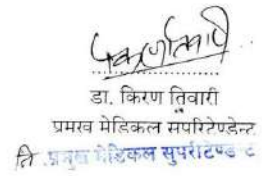 डा. किरण तिवारी
प्रमख मेडिकल सपरिटेण्डेन्ट
प्रमुख मेडिकल सुपरीटेण्डेन्ट